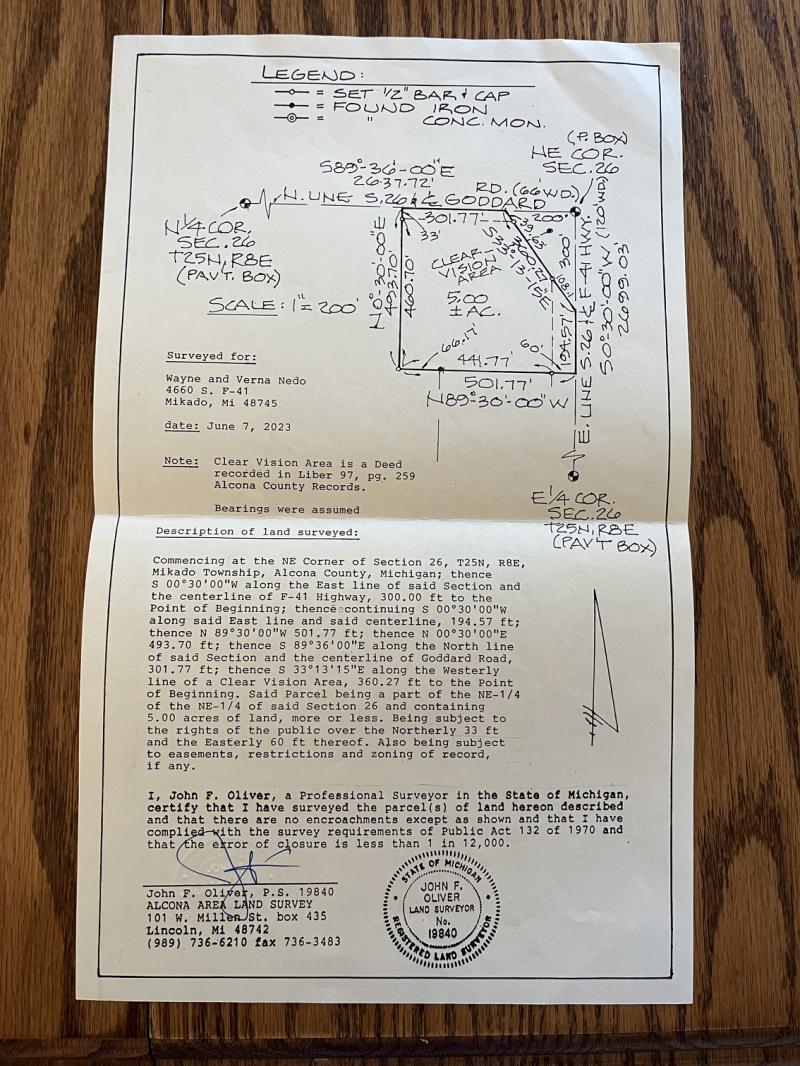 LEGEND:
= SET 1/2" BAR & CAP
= FOUND IRON
= " CONC. MON.
(P. BOX)
NE COR.
SEC. 26
S89°-36'-00"E
2637.72'
RD. (66'WD.)
N. LINE S.26 & ℄ GODDARD
N1/4 COR.
SEC. 26
T25N, R8E
(PAV'T. BOX)
301.77'
200'
33'
N0°-30'-00"E
493.70'
460.70'
CLEAR-
VISION
AREA
S33°-13'-15"E
360.27'
300'
5.00
± AC.
SCALE: 1" = 200'
66.17'
60'
194.57'
441.77'
501.77'
N89°-30'-00"W
E. LINE S.26 & ℄ F-41 HWY. (120'WD)
S0°-30'-00"W
2699.03
E1/4 COR.
SEC. 26
T25N, R8E
(PAV'T BOX)
Surveyed for:
Wayne and Verna Nedo
4660 S. F-41
Mikado, Mi 48745
date: June 7, 2023
Note: Clear Vision Area is a Deed
recorded in Liber 97, pg. 259
Alcona County Records.
Bearings were assumed
Description of land surveyed:
Commencing at the NE Corner of Section 26, T25N, R8E,
Mikado Township, Alcona County, Michigan; thence
S 00°30'00"W along the East line of said Section and
the centerline of F-41 Highway, 300.00 ft to the
Point of Beginning; thence continuing S 00°30'00"W
along said East line and said centerline, 194.57 ft;
thence N 89°30'00"W 501.77 ft; thence N 00°30'00"E
493.70 ft; thence S 89°36'00"E along the North line
of said Section and the centerline of Goddard Road,
301.77 ft; thence S 33°13'15"E along the Westerly
line of a Clear Vision Area, 360.27 ft to the Point
of Beginning. Said Parcel being a part of the NE-1/4
of the NE-1/4 of said Section 26 and containing
5.00 acres of land, more or less. Being subject to
the rights of the public over the Northerly 33 ft
and the Easterly 60 ft thereof. Also being subject
to easements, restrictions and zoning of record,
if any.
I, John F. Oliver, a Professional Surveyor in the State of Michigan,
certify that I have surveyed the parcel(s) of land hereon described
and that there are no encroachments except as shown and that I have
complied with the survey requirements of Public Act 132 of 1970 and
that the error of closure is less than 1 in 12,000.
John F. Oliver, P.S. 19840
ALCONA AREA LAND SURVEY
101 W. Millen St. box 435
Lincoln, Mi 48742
(989) 736-6210 fax 736-3483
STATE OF MICHIGAN
JOHN F.
OLIVER
LAND SURVEYOR
No.
19840
REGISTERED LAND SURVEYOR